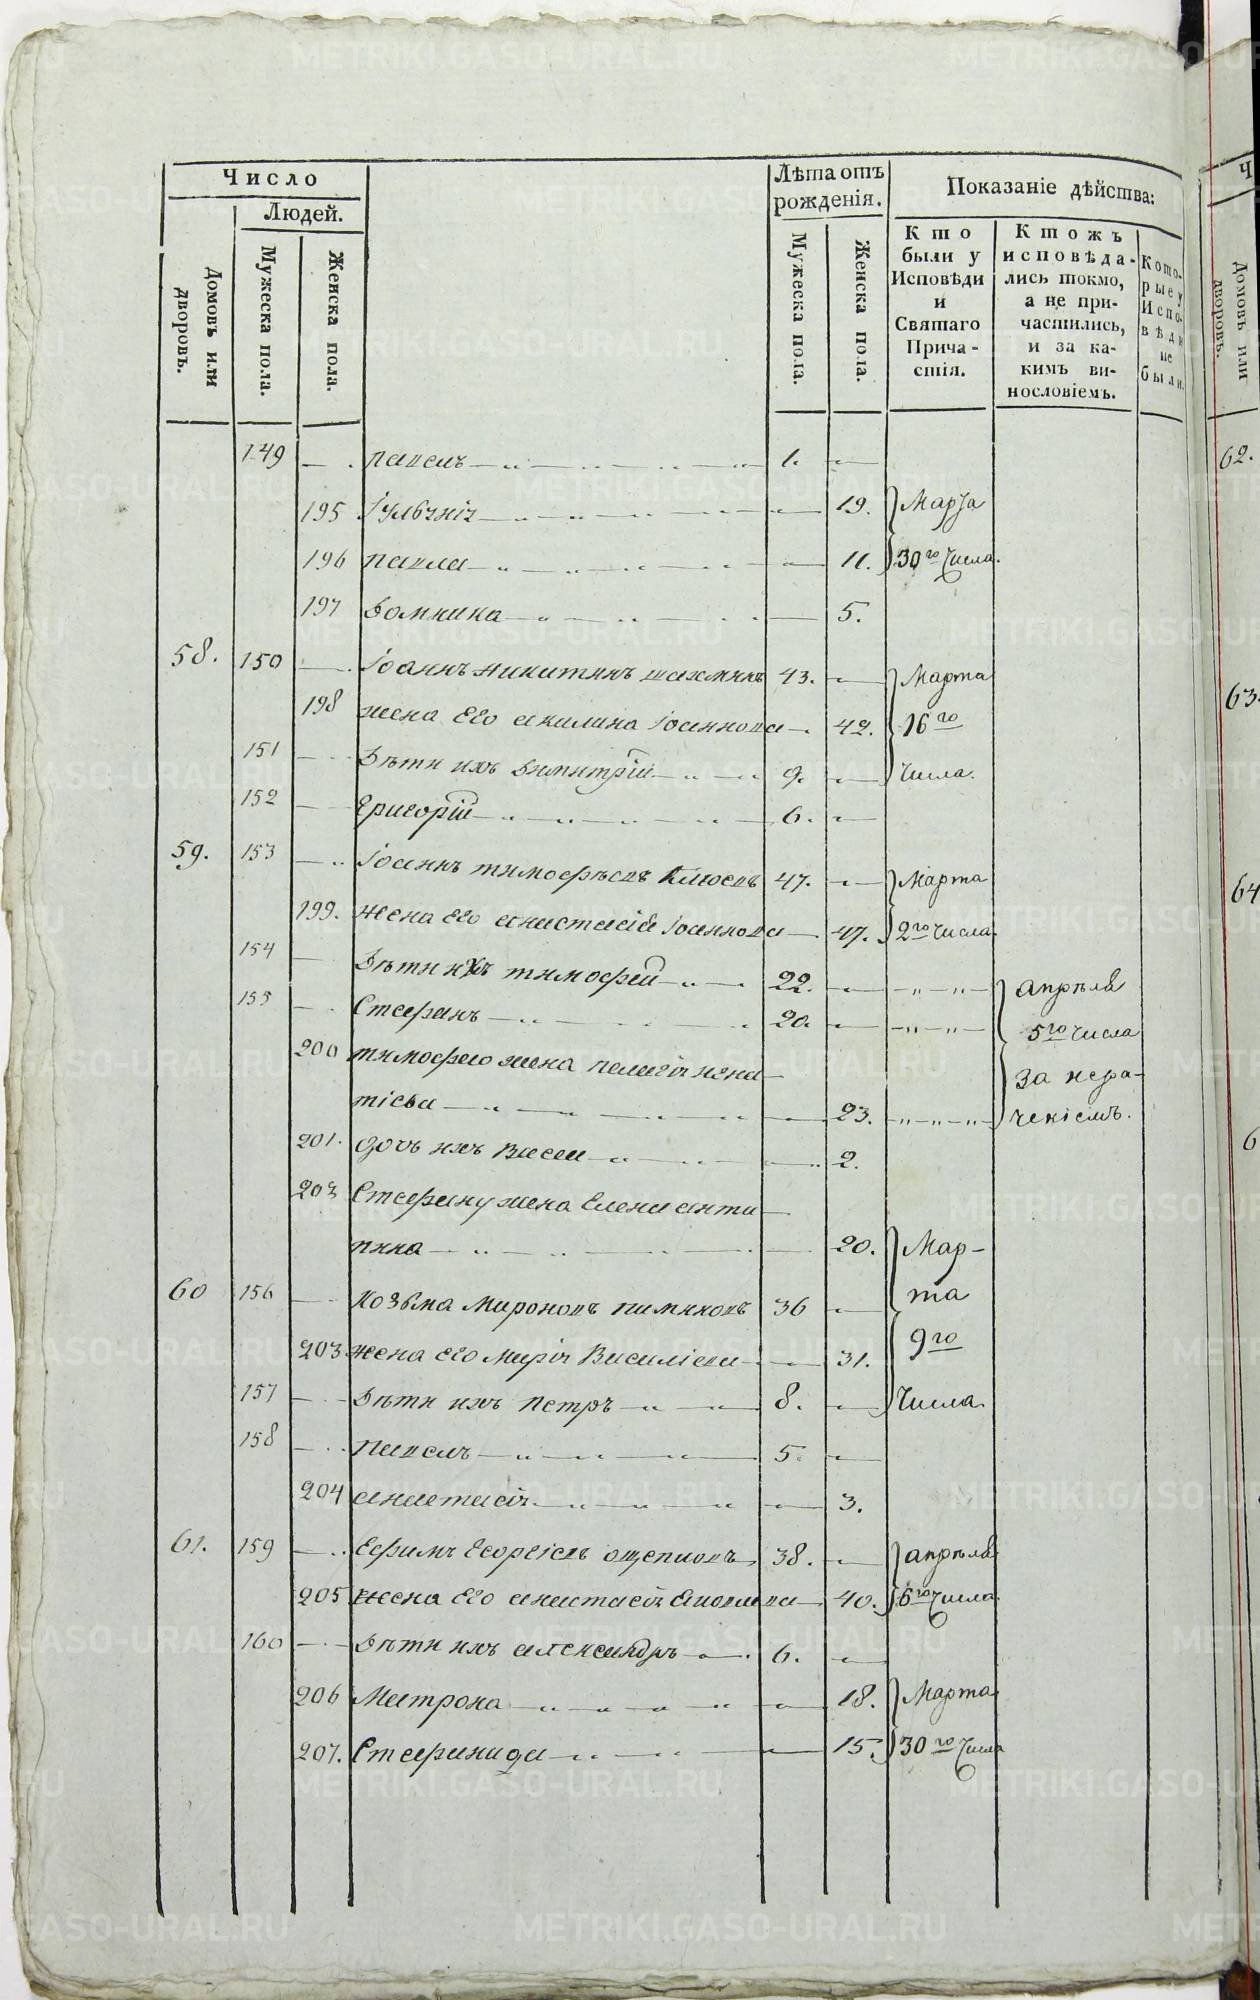 Число
Людей.
Домовъ или дворовъ.
Мужеска пола.
Женска пола.
Лѣта отъ рожденія.
Мужеска пола.
Женска пола.
Показаніе дѣйства:
Кто были у Исповѣди и Святаго Причастія.
Ктожъ исповѣдались токмо, а не причастились, и за какимъ винословіемъ.
Которые у Исповѣди не были.
149 павелъ 1.
195 19. Марта
196 павла 11. 30го Числа.
197 Домника 5.
58. 150 Іоаннъ никитинъ 43. Марта
198 жена Его акилина Іоаннова 42. 16го
151 дѣти ихъ димитрій 9. Числа.
152 Григорій 6.
59. 153 Іоаннъ тимофѣевъ Клюевъ 47. Марта
199. жена Его анастасія Іоаннова 47. 2го Числа
154 дѣти ихъ тимофей 22. апрѣля
155 Стефанъ 20. 5го Числа
200 тимофею жена пелагія игна- за нера-
тіева 23. ченіемъ.
201. дочь ихъ Васса 2.
202 Стефану жена Елена анти
пина 20. Мар-
60 156 Козьма Мироновъ пимяновъ 36 та
203 жена Его Марія Василіева 31. 9го
157 дѣти ихъ Петръ 8. Числа
158 павелъ 5.
204 анастасія 3.
61. 159 Ефимъ Георгіевъ ощеповъ 38. апрѣля
205 жена Его анастасія Яковлева 40. 6го Числа
160 дѣти ихъ александръ 6.
206 Матрона 18. Марта
207. Стефанида 15. 30го Числа
62.
63.
64
METRIKI.GASO-URAL.RU